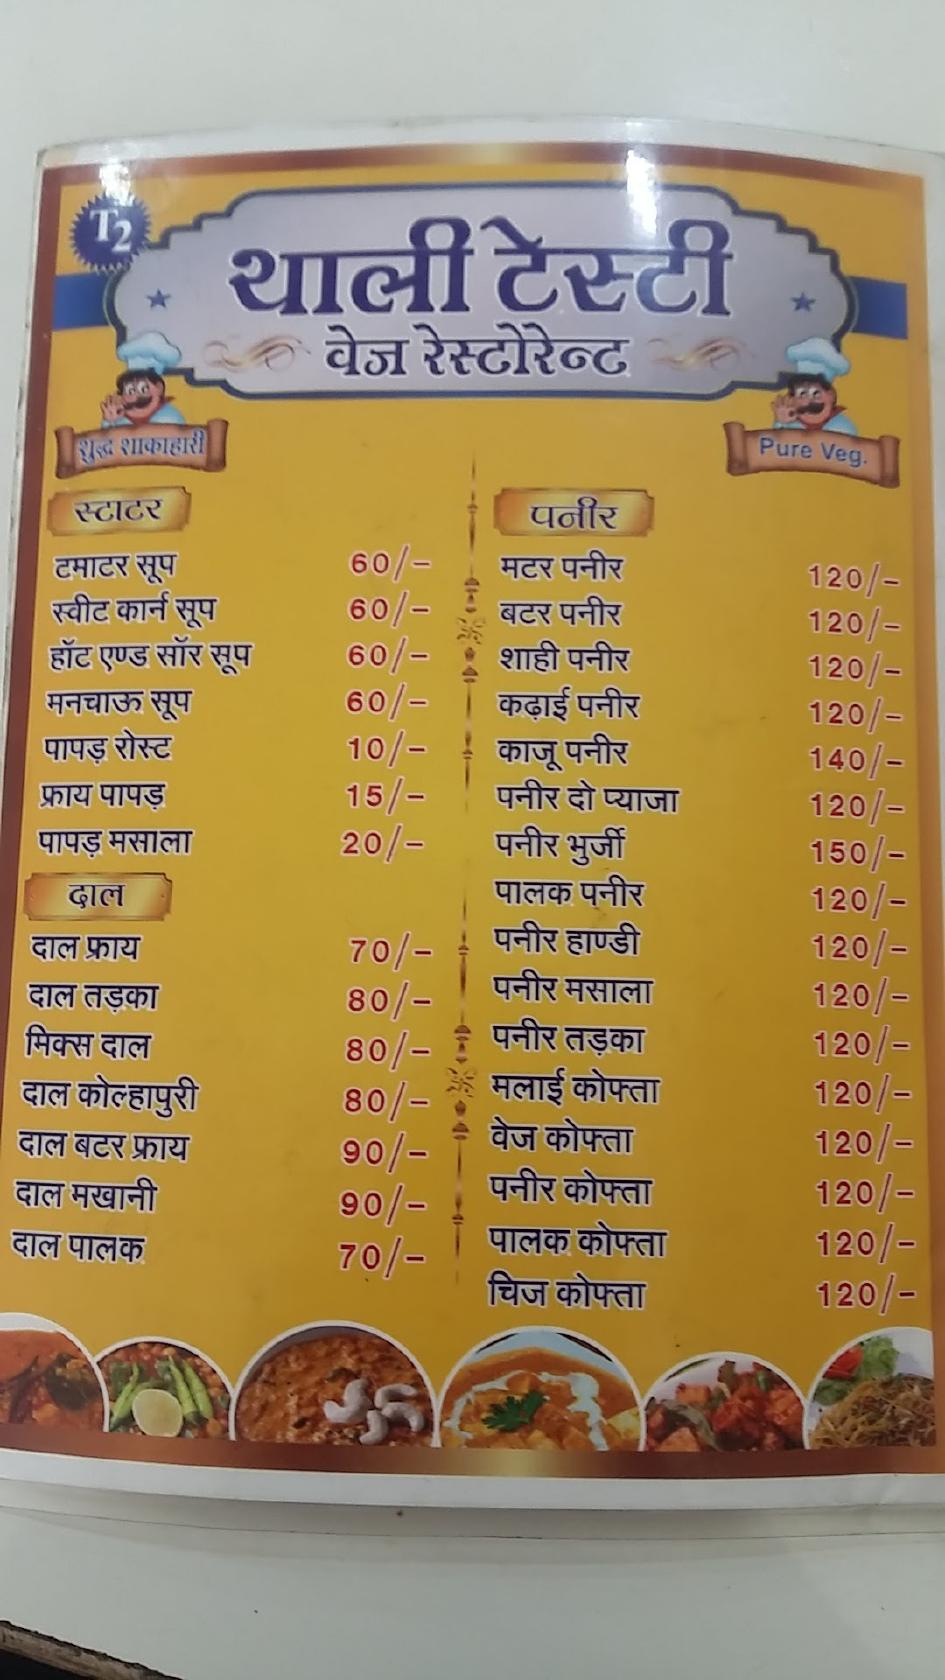 T2
थाली टेस्टी
वेज रेस्टोरेन्ट
शुद्ध शाकाहारी
Pure Veg.
स्टाटर
टमाटर सूप 60/-
स्वीट कार्न सूप 60/-
हॉट एण्ड सॉर सूप 60/-
मनचाऊ सूप 60/-
पापड़ रोस्ट 10/-
फ्राय पापड़ 15/-
पापड़ मसाला 20/-
दाल
दाल फ्राय 70/-
दाल तड़का 80/-
मिक्स दाल 80/-
दाल कोल्हापुरी 80/-
दाल बटर फ्राय 90/-
दाल मखानी 90/-
दाल पालक 70/-
पनीर
मटर पनीर 120/-
बटर पनीर 120/-
शाही पनीर 120/-
कढ़ाई पनीर 120/-
काजू पनीर 140/-
पनीर दो प्याजा 120/-
पनीर भुर्जी 150/-
पालक पनीर 120/-
पनीर हाण्डी 120/-
पनीर मसाला 120/-
पनीर तड़का 120/-
मलाई कोफ्ता 120/-
वेज कोफ्ता 120/-
पनीर कोफ्ता 120/-
पालक कोफ्ता 120/-
चिज कोफ्ता 120/-